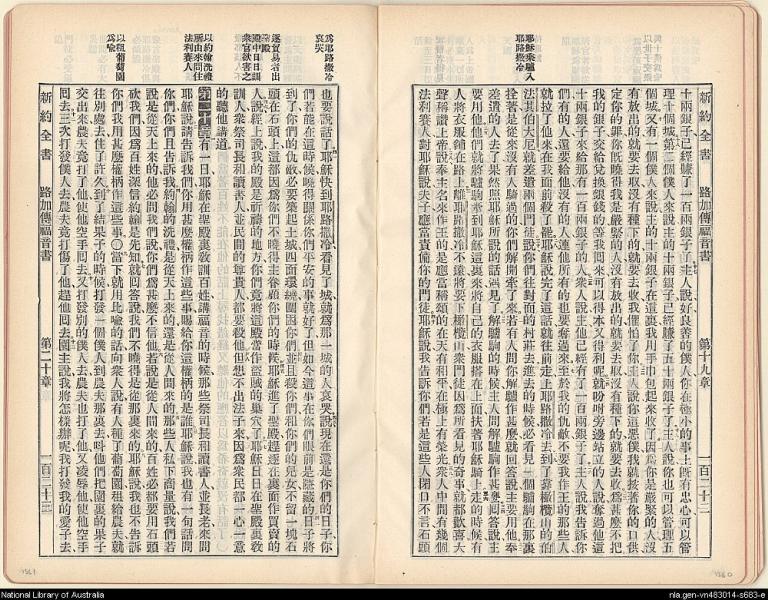 與十僕爲貿易交銀
以世子交
耶穌乘驢入
耶路撒冷
新約全書 路加傳福音書 第十九章 一百二十二
十兩銀子已經賺了一百兩銀子了主人說好良善的僕人你在極小的事上旣有忠心可以管
理十個城第二個僕人來說主的十兩銀子已經賺了五十兩銀子了主人說你也可以管理五
個城又有一個僕人來說主的十兩銀子在這裏我用手巾包起來收了因爲你是嚴緊的人沒
有放出的就要去取沒有種下的就要去收我懼怕了你主人說你這惡僕我就按著你的口供
定你的罪你旣曉得我是嚴緊的人沒有放出的就要去取沒有種下的就要去收爲甚麼不把
我的銀子交給兌換銀錢的等我囘來可以得本又得利呢就吩咐旁邊站立的人說奪過他這
十兩銀子來給那有一百兩銀子的人衆人說主他已經有了一百兩銀子了主人說我告訴你
們有的人還要給他沒有的人連他所有的也要奪過來至於我的仇敵不要我作王的那些人
就拉了他來在我面前殺了罷耶穌說完了這話就往前走上耶路撒冷去到了靠橄欖山的伯
法其伯大尼就差遣兩個門徒說你們往對面的村莊去進去的時候必看見一個驢駒在那裏
拴著是從來沒有人騎過的你們解開牽了來若有人問你解驢作甚麼就囘答說主要用他奉
差遣的人去了果然照耶穌所說的話遇見了解驢駒的時候主人問解驢駒作甚麼囘答說主
要用他他們就將驢駒牽到耶穌這裏來將自己的衣服搭在上面扶著耶穌騎上走的時候有
人將衣服鋪在路上離耶路撒冷不遠將要下橄欖山衆門徒因爲所看見的奇事就都歡喜大
聲稱讚上帝說奉主名來作王的是應當稱頌的在天有和平在極上有榮光衆人中間有幾個
法利賽人對耶穌說夫子應當責備你的門徒耶穌說我告訴你們若是這些人閉口不言石頭
爲耶路撒冷
哀哭
逐貿易者出
聖殿
殿中日日訓
衆官欲害之
以約翰洗禮
所由來問住
法利賽人
以租葡萄園
爲喩
也要說話了耶穌快到耶路撒冷看見了城就爲那一城的人哀哭說現在還是你們的日子你
們若能在這時候曉得關係你們平安的事就好了但如今這事在你們眼前是隱藏的日子將
到了你們的仇敵必要築起土城四面環繞圍困你們並且殺你們和你們的兒女不留一塊石
頭在石頭上這都因爲你們不曉得主眷顧你們的時候耶穌進了聖殿趕逐在裏面作買賣的
人說經上說我的殿是祈禱的地方你們竟將這殿當作盜賊的巢穴了耶穌日日在聖殿裏敎
訓人衆祭司長和讀書人並民間的尊貴人都要殺他但想不出法子來因爲衆民都一心一意
的聽他講道
第二十章有一日耶穌在聖殿裏敎訓百姓講福音的時候那些祭司長和讀書人並長老來問
耶穌說請告訴我們你用甚麼權柄作這些事賜給你這權柄的是誰耶穌說我也有一句話問
你們你們且告訴我約翰的洗禮是從天上來的還是從人間來的那些人私下商量說我們若
說是從天上來的他必問我們說你們爲甚麼不信他若說是從人間來的百姓必都要用石頭
砍我們因爲百姓深信約翰是先知就囘答說我們不曉得是從那裏來的耶穌說我也不告訴
你們我用甚麼權柄作這些事〇當下就用比喩的話向衆人說有人種了葡萄園租給農夫就
往別處去住了許久到了結果子的時候打發一個僕人到農夫那裏去叫他們把園裏的果子
交出來農夫竟打了他使他空手囘去又打發別的僕人去農夫也打了他又凌辱他使他空手
囘去三次打發僕人去農夫竟打傷了他趕他囘去園主說我將怎樣辦呢我打發我的愛子去
新約全書 路加傳福音書 第二十章 一百二十三
National Library of Australia
nla.gen-vn483014-s683-e